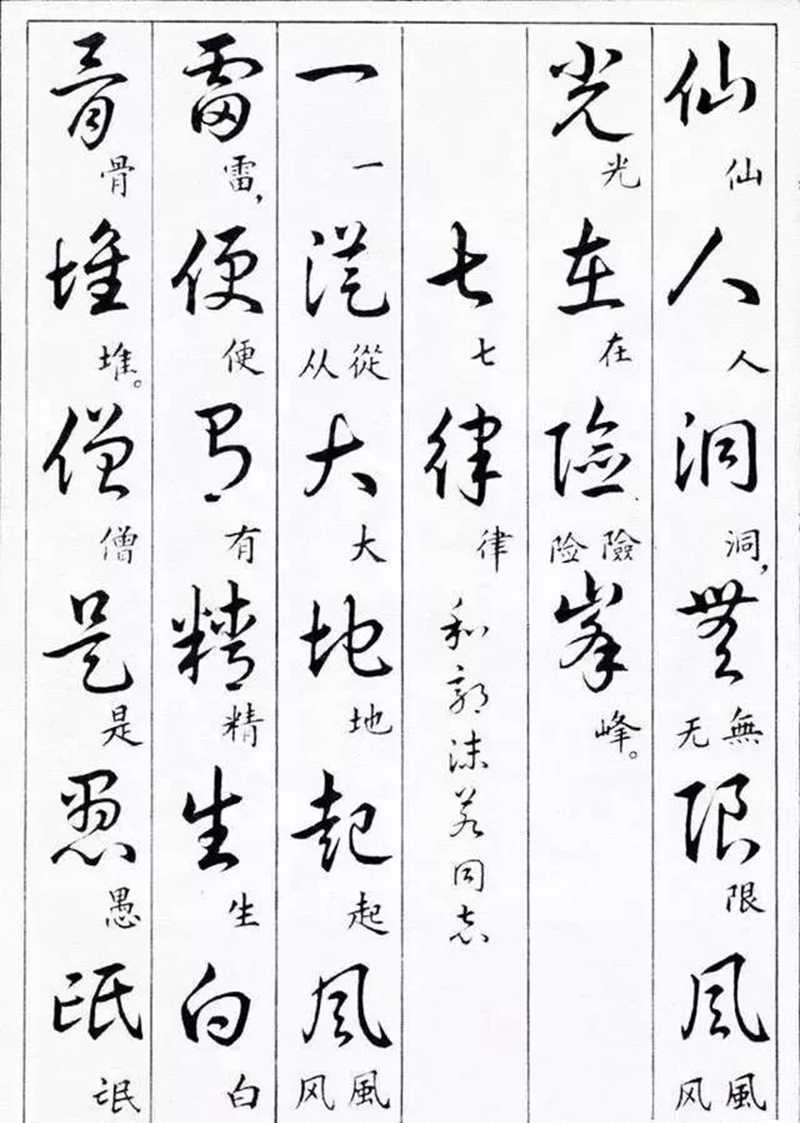 仙人洞無限風
仙人洞，無无限風风
光在險峯
光在險险峰。
七律
七律
和郭沫若同志
一從大地起風
一從从大地起風风
雷便有精生白
雷，便有精生白
骨堆僧是愚氓
骨堆。僧是愚氓